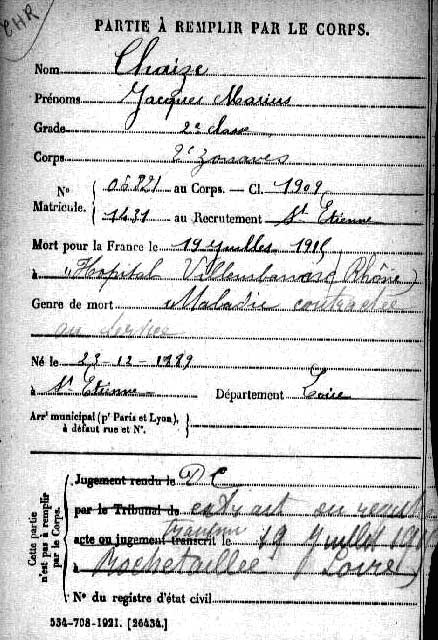 CHR
PARTIE À REMPLIR PAR LE CORPS.
Nom Chaize
Prénoms Jacques Marius
Grade 2e classe
Corps 2e Zouaves
N° Matricule. { 05.821 au Corps. — Cl. 1909
1431 au Recrutement St Etienne
Mort pour la France le 19 juillet 1915
à Hopital Villeurbanne (Rhône)
Genre de mort Maladie contractée
au service
Né le 23-12-1889
à St Etienne Département Loire
Arrt municipal (pr Paris et Lyon), à défaut rue et N°. }
Cette partie n'est pas à remplir par le Corps.
Jugement rendu le DC
par le Tribunal de extrait du
acte ou jugement transcrit le 19 juillet
à Rochetaillée (Loire)
N° du registre d'état civil
534-708-1921. [26434.]